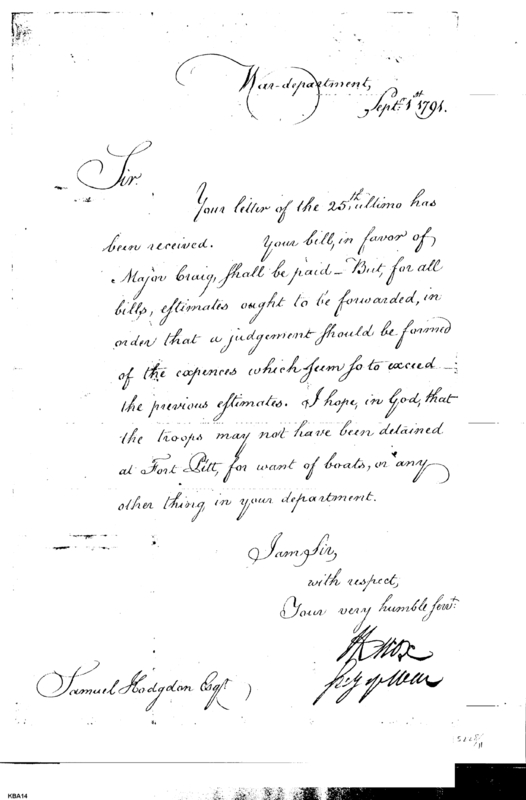 War-department,
Septr. 1st 1791.
Sir.
Your letter of the 25th. ultimo has
been received. Your bill, in favor of
Major Craig, shall be paid — But, for all
bills, estimates ought to be forwarded, in
order that a judgement should be formed
of the expences which seem so to exceed
the previous estimates. I hope, in God, that
the troops may not have been detained
at Fort Pitt, for want of boats, or any
other thing in your department.
I am, Sir,
with respect,
Your very humble servt.
H Knox
Secy of War
Samuel Hodgdon Esqr.
KBA14